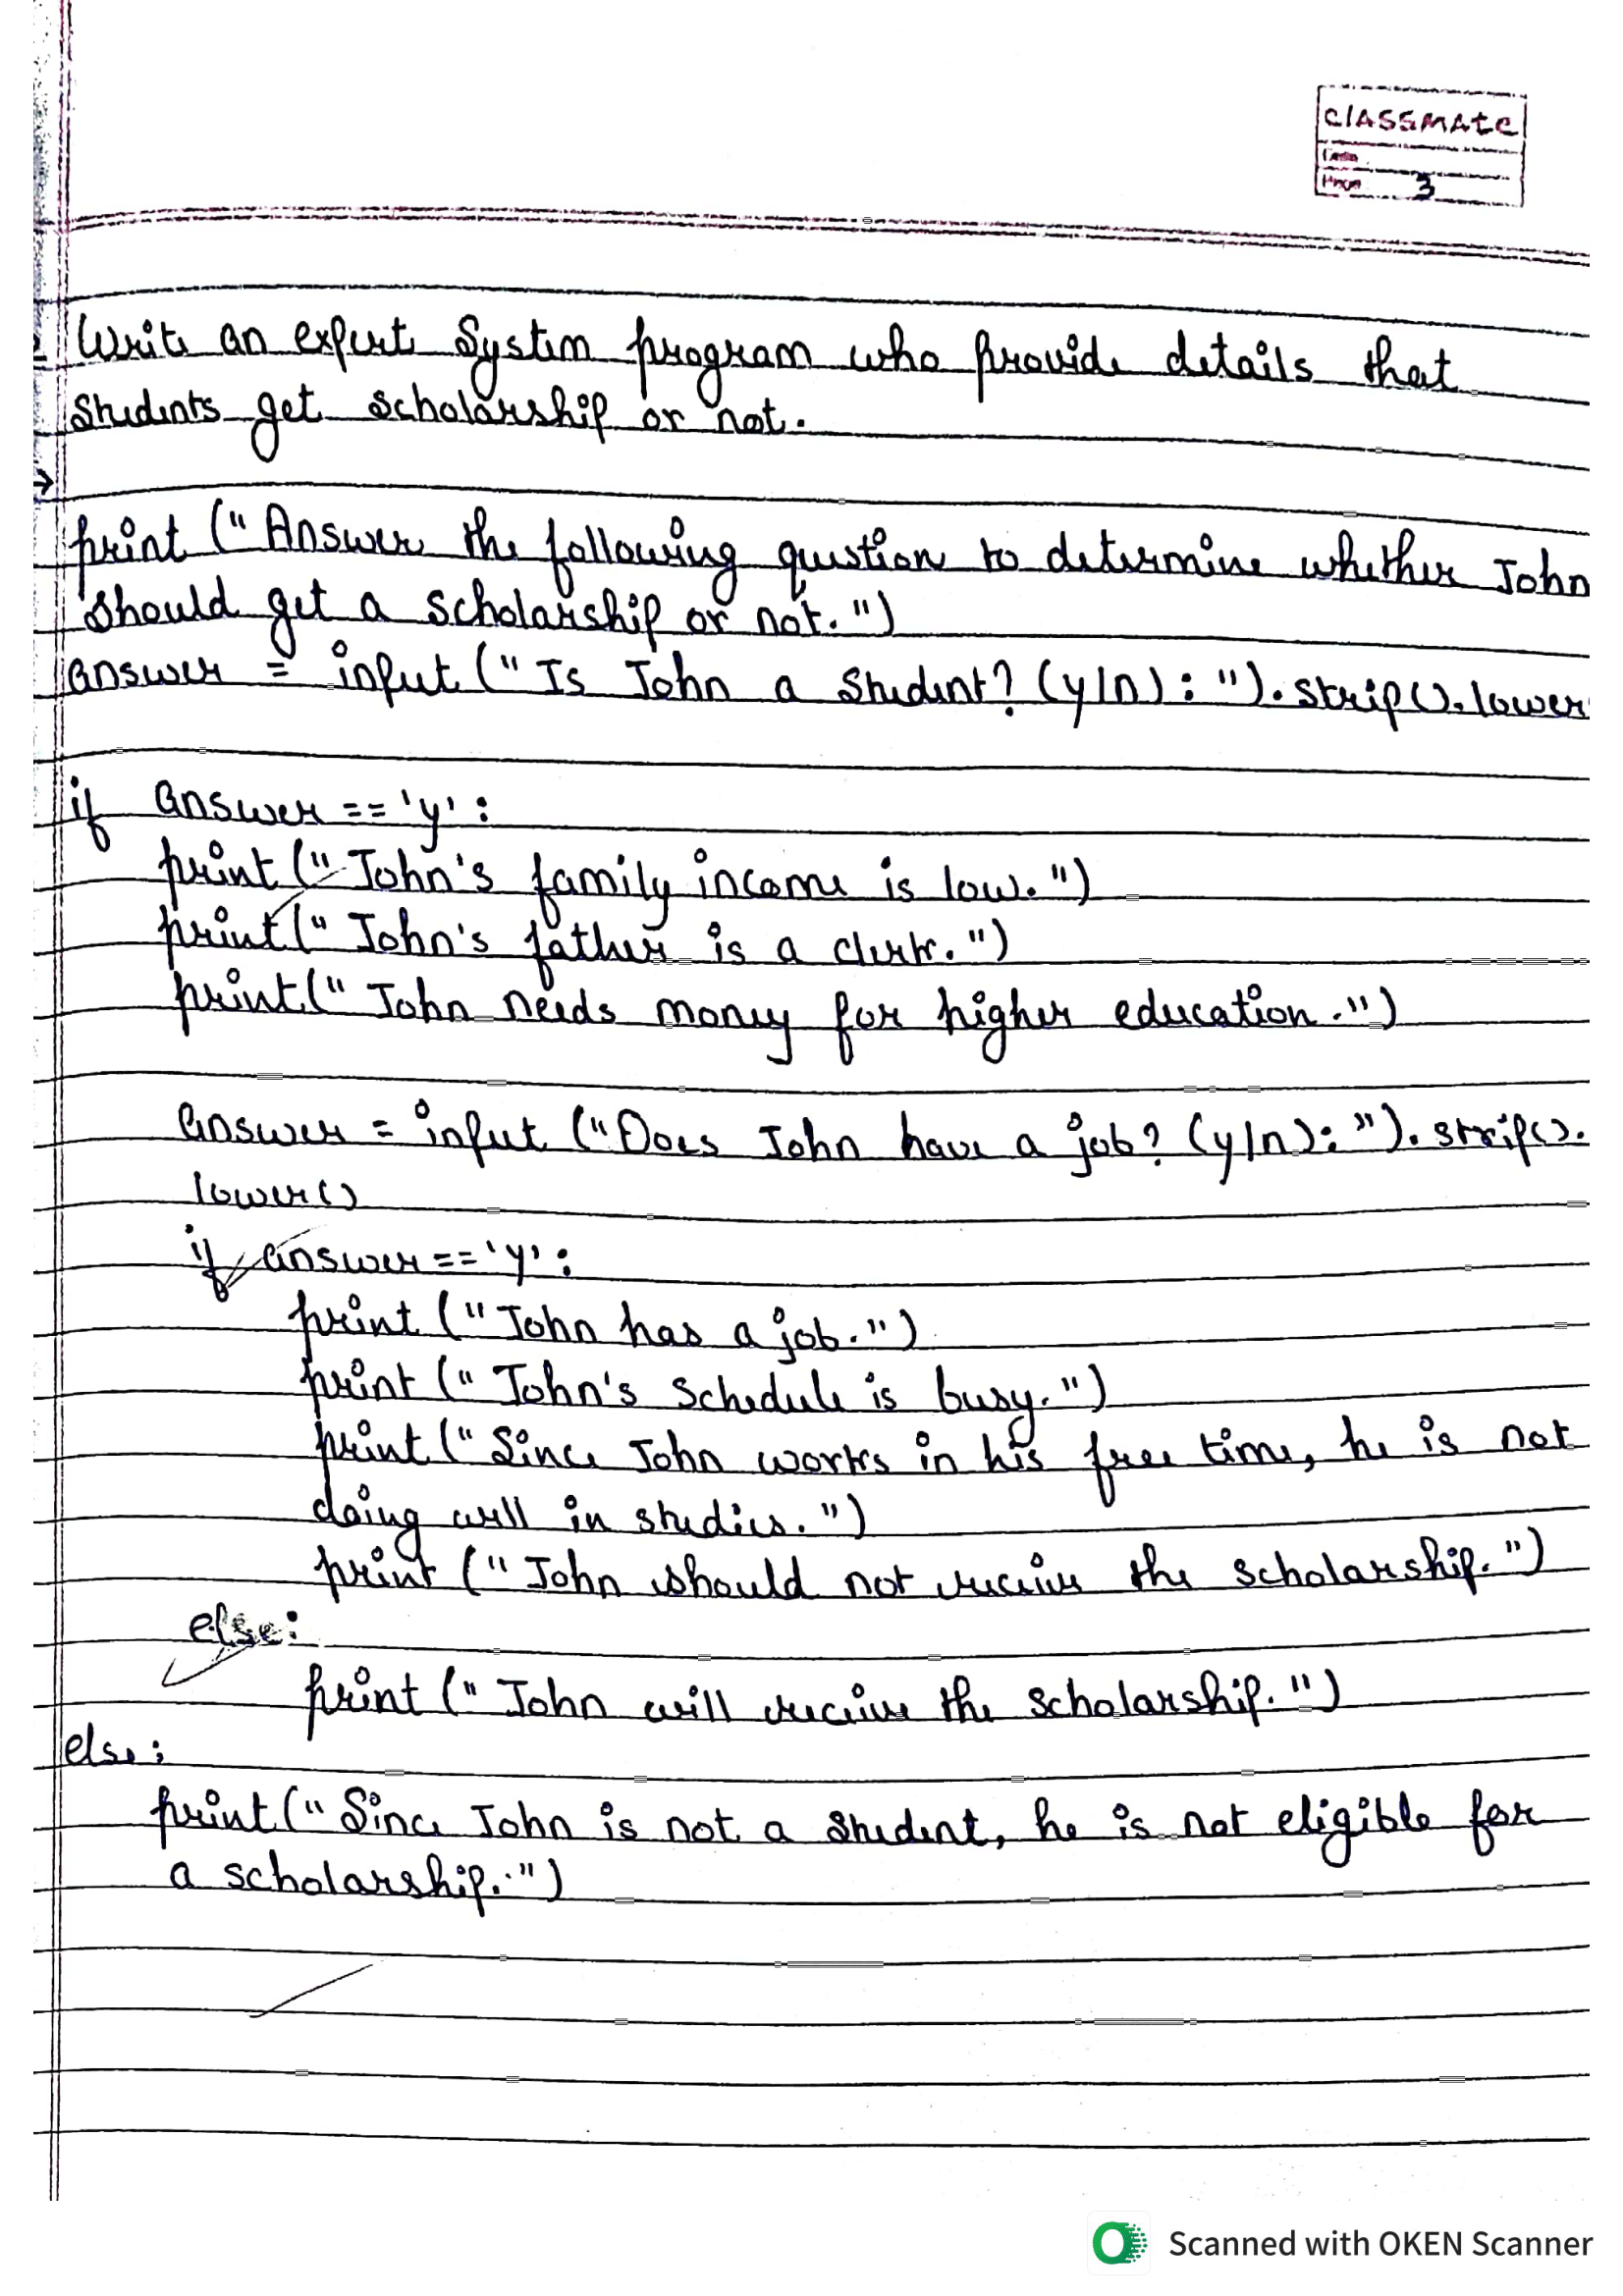 classmate
Date
Page 3
Write an expert System program who provide details that
Students get scholarship or not.
→
print (" Answer the following question to determine whether John
should get a scholarship or not.")
answer = input (" Is John a Student? (y/n) : "). strip(). lower
if answer == 'y' :
print (" John's family income is low.")
print (" John's father is a clerk.")
print (" John needs money for higher education.")
answer = input ("Does John have a job? (y/n): "). strip().
lower()
if answer == 'y' :
print (" John has a job.")
print (" John's Schedule is busy.")
print (" Since John works in his free time, he is not
doing well in studies.")
print (" John should not receive the scholarship.")
else:
print (" John will receive the scholarship.")
else:
print (" Since John is not a student, he is not eligible for
a scholarship.")
Scanned with OKEN Scanner